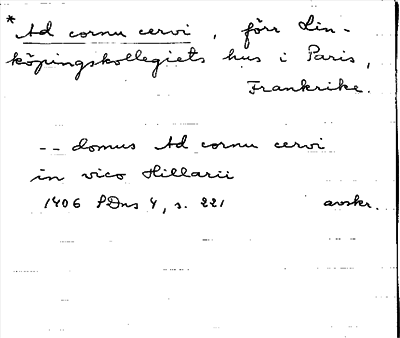 * Ad cornu cervi, förr Lin-
köpingskollegiets hus i Paris,
Frankrike.
-- domus Ad cornu cervi
in vico Hillarii
1406 SDns 4, s. 221 avskr.